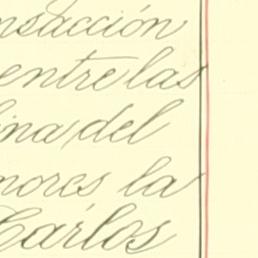 nsacción
entre las
ina del
mores la
Carlos